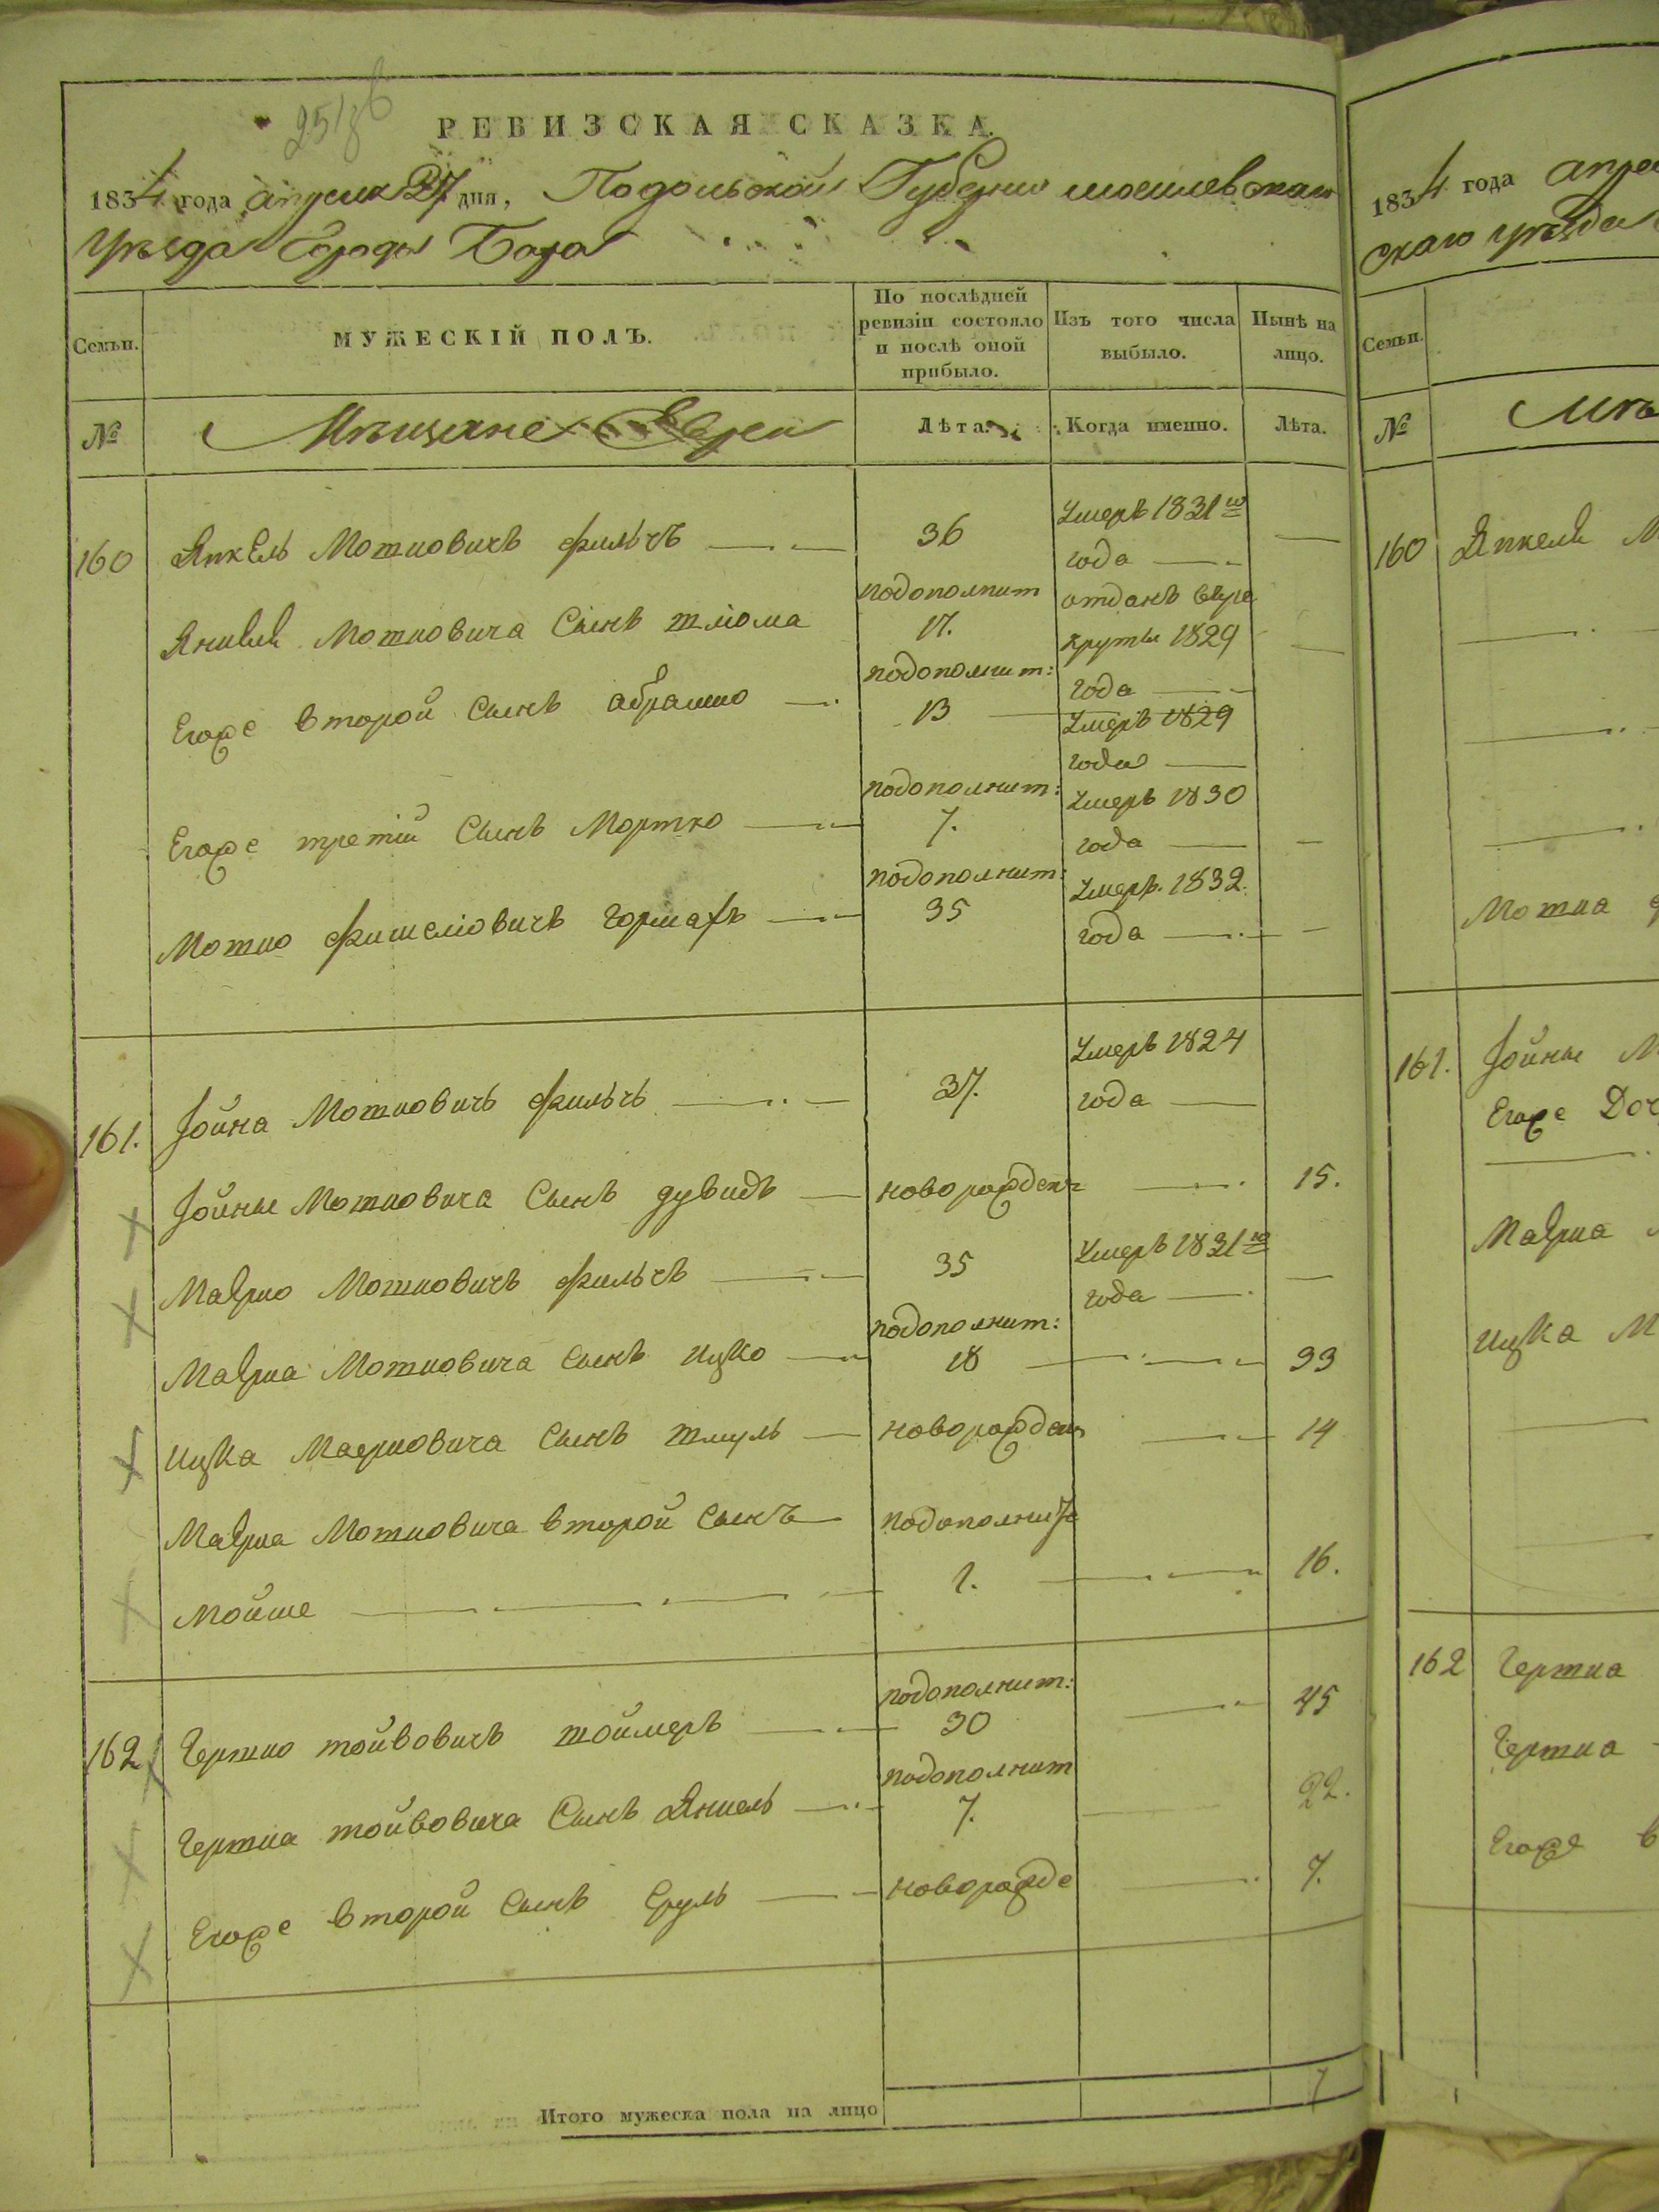 251 зв
РЕВИЗСКАЯ СКАЗКА.
1834 года апреля 27 дня, Подольской Губернии могилевскаго
уѣзда Города Бара
Семьи.
МУЖЕСКІЙ ПОЛЪ.
По послѣдней ревизіи состояло и послѣ оной прибыло.
Изъ того числа выбыло.
Нынѣ на лицо.
№
Мѣщане Евреи
Лѣта.
Когда именно.
Лѣта.
160 Янкель Мотиовичъ фильчъ 36 Умеръ 1831го
года
Янкеля Мотиовича Сынъ шліома подополнит 17. отданъ в
рекруты 1829
года
Егоже второй Сынъ абрамио подополнит: 13 Умеръ 1829
года
Егоже третій Сынъ Мортко подополнит: 7. Умеръ 1830
года
Мотио фишеліовичъ подополнит: 35 Умеръ 1832.
года
161. Іойна Мотиовичъ фильчъ 37. Умеръ 1824
года
Іойны Мотиовича Сынъ дувидъ новорожден 15.
Маерио Мотиовичъ фильчъ 35 Умеръ 1831го
года
Маериа Мотиовича Сынъ ицко подополнит: 18 33
ицка Маериовича Сынъ шмуль новорожден 14
Маериа Мотиовича второй Сынъ подополнит
Мойше 1. 16.
162 Гершио шойвовичъ шоймеръ подополнит: 30 45
Гершиа шойвовича Сынъ Янкель подополнит 7. 22.
Егоже второй Сынъ Сруль новорожде 7.
Итого мужеска пола на лицо 7
1834 года апре
скаго уѣзда
Семьи.
№
Мѣ
160 Янкеля М
Мотиа ф
161. Іойны М
Егоже Доч
Маериа М
ицка М
162 Гершиа
Гершиа
Егоже в